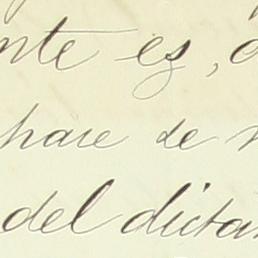 nte es,
hace de
del dicta